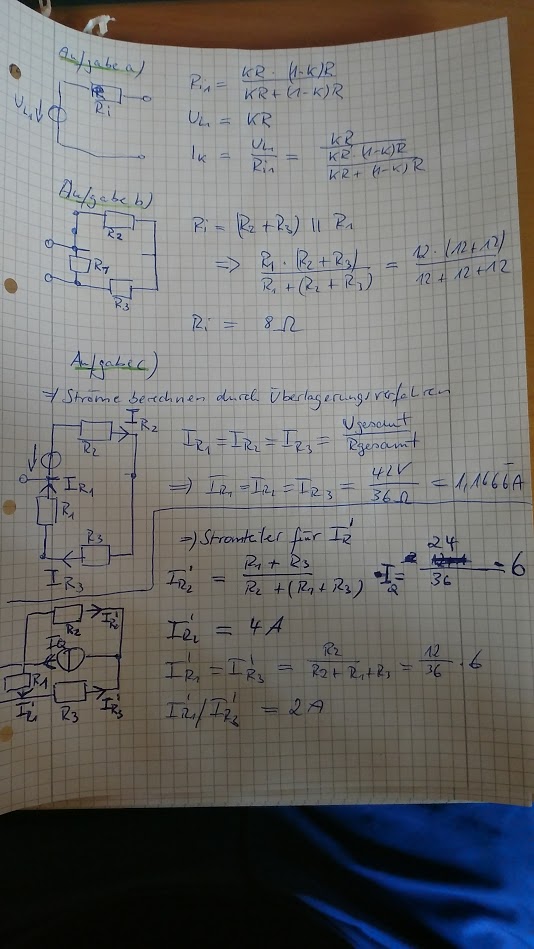 Aufgabe a)
R
Ri
UL1
Ri1 = KR · (1-K)R / KR + (1-K)R
UL1 = KR
IK = UL1 / Ri1 = KR / KR · (1-K)R / KR + (1-K)R
Aufgabe b)
R2
R1
R3
Ri = (R2 + R3) || R1
=> R1 · (R2 + R3) / R1 + (R2 + R3) = 12 · (12+12) / 12 + 12 + 12
Ri = 8 Ω
Aufgabe c)
=> Ströme berechnen durch Überlagerungsverfahren
IR2
R2
IR1
R1
R3
IR3
IR1 = IR2 = IR3 = Ugesamt / Rgesamt
=> IR1 = IR2 = IR3 = 42V / 36Ω = 1,1666A
=> Stromteiler für IR'
IR2' = R1 + R3 / R2 + (R1 + R3) · I2 = 24 / 36 · 6
R2
IR2'
IQ
R1
IR1'
R3
IR3'
IR2' = 4A
IR1' = IR3' = R2 / R2 + R1 + R3 = 12 / 36 · 6
IR1' / IR3' = 2A